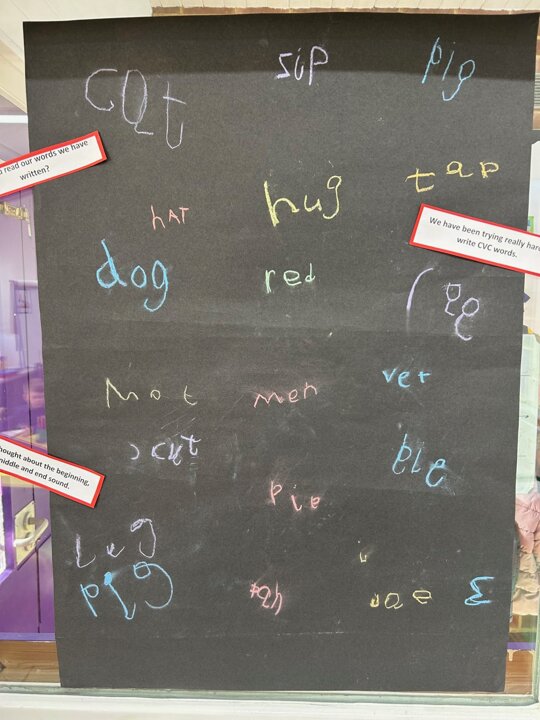 cat
sip
pig
read our words we have
written?
hug
tap
hAT
We have been trying really hard
write CVC words.
dog
red
leg
Mot
men
vet
cut
thought about the beginning,
middle and end sound.
Pie
Leg
pig